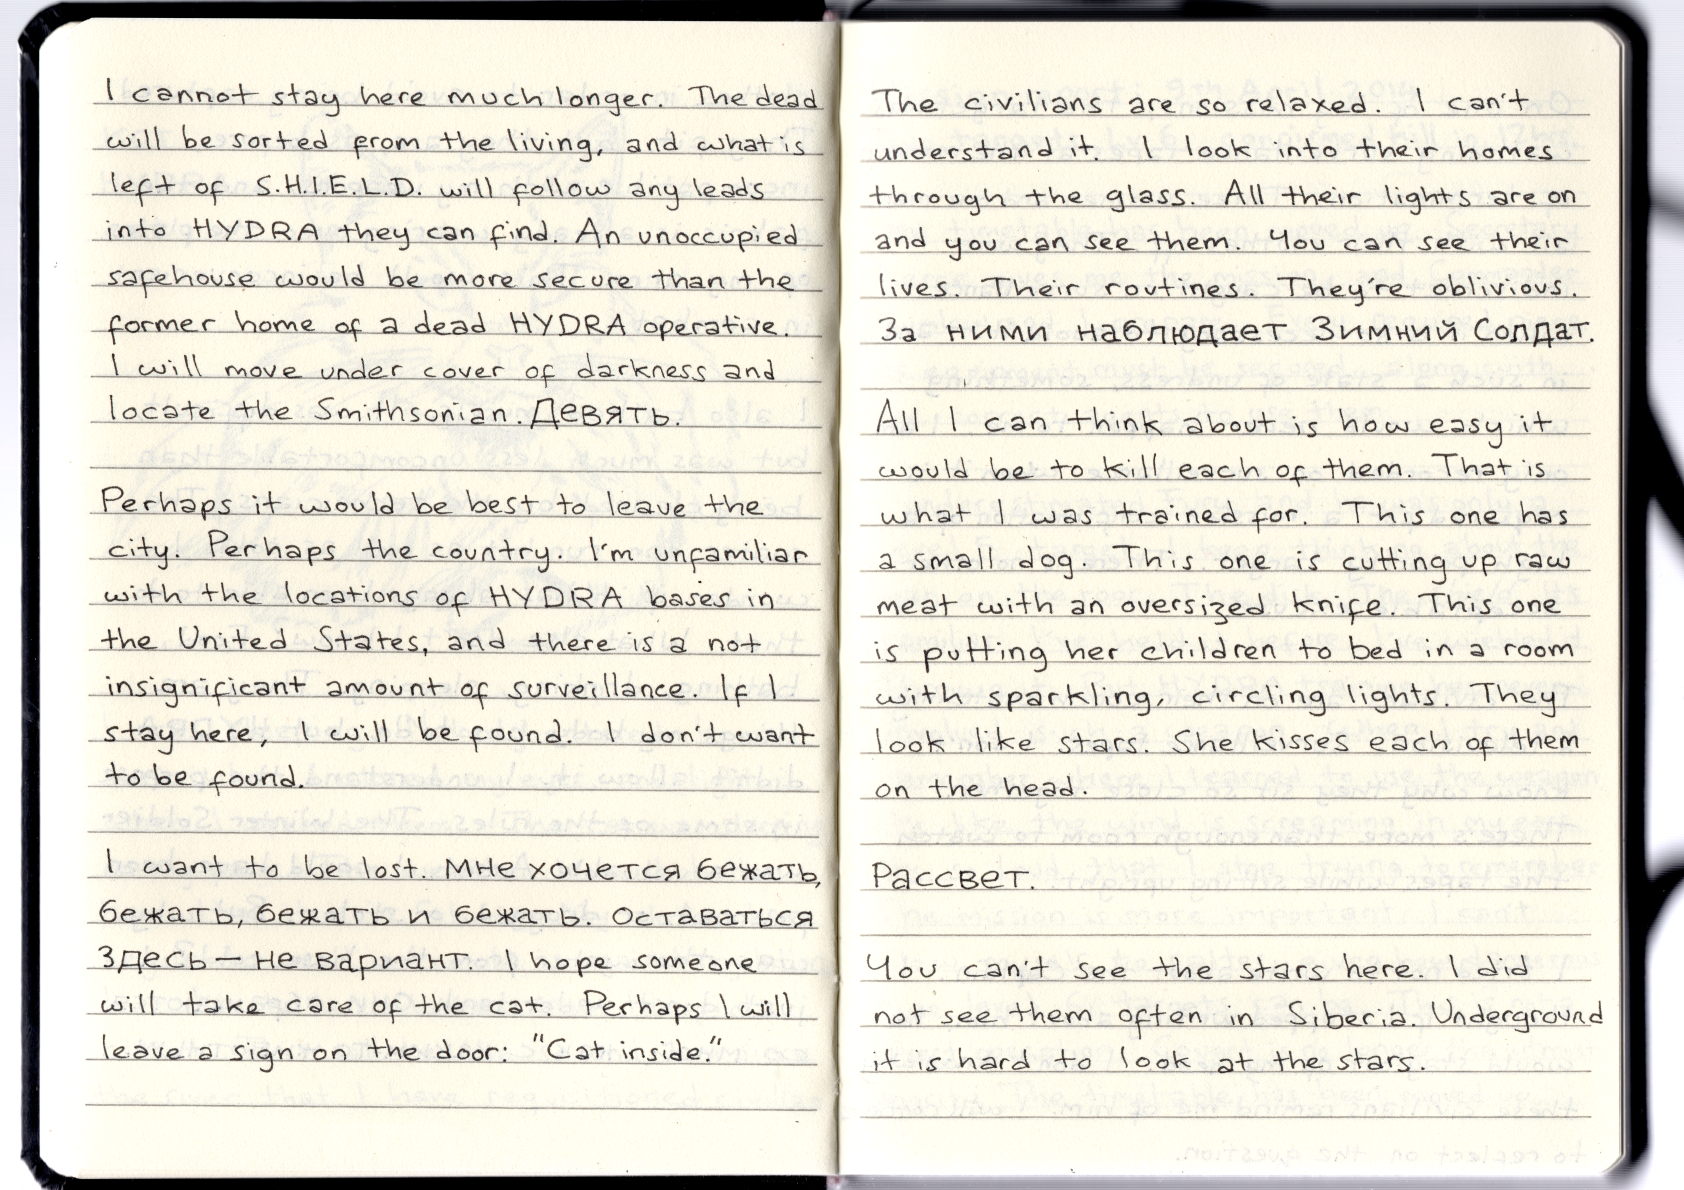 I cannot stay here much longer. The dead
will be sorted from the living, and what is
left of S.H.I.E.L.D. will follow any leads
into HYDRA they can find. An unoccupied
safehouse would be more secure than the
former home of a dead HYDRA operative.
I will move under cover of darkness and
locate the Smithsonian. Девять.
Perhaps it would be best to leave the
city. Perhaps the country. I'm unfamiliar
with the locations of HYDRA bases in
the United States, and there is a not
insignificant amount of surveillance. If I
stay here, I will be found. I don't want
to be found.
I want to be lost. Мне хочется бежать,
бежать, бежать и бежать. Оставаться
здесь — не вариант. I hope someone
will take care of the cat. Perhaps I will
leave a sign on the door: "Cat inside."
The civilians are so relaxed. I can't
understand it. I look into their homes
through the glass. All their lights are on
and you can see them. You can see their
lives. Their routines. They're oblivious.
За ними наблюдает Зимний Солдат.
All I can think about is how easy it
would be to kill each of them. That is
what I was trained for. This one has
a small dog. This one is cutting up raw
meat with an oversized knife. This one
is putting her children to bed in a room
with sparkling, circling lights. They
look like stars. She kisses each of them
on the head.
Рассвет.
You can't see the stars here. I did
not see them often in Siberia. Underground
it is hard to look at the stars.